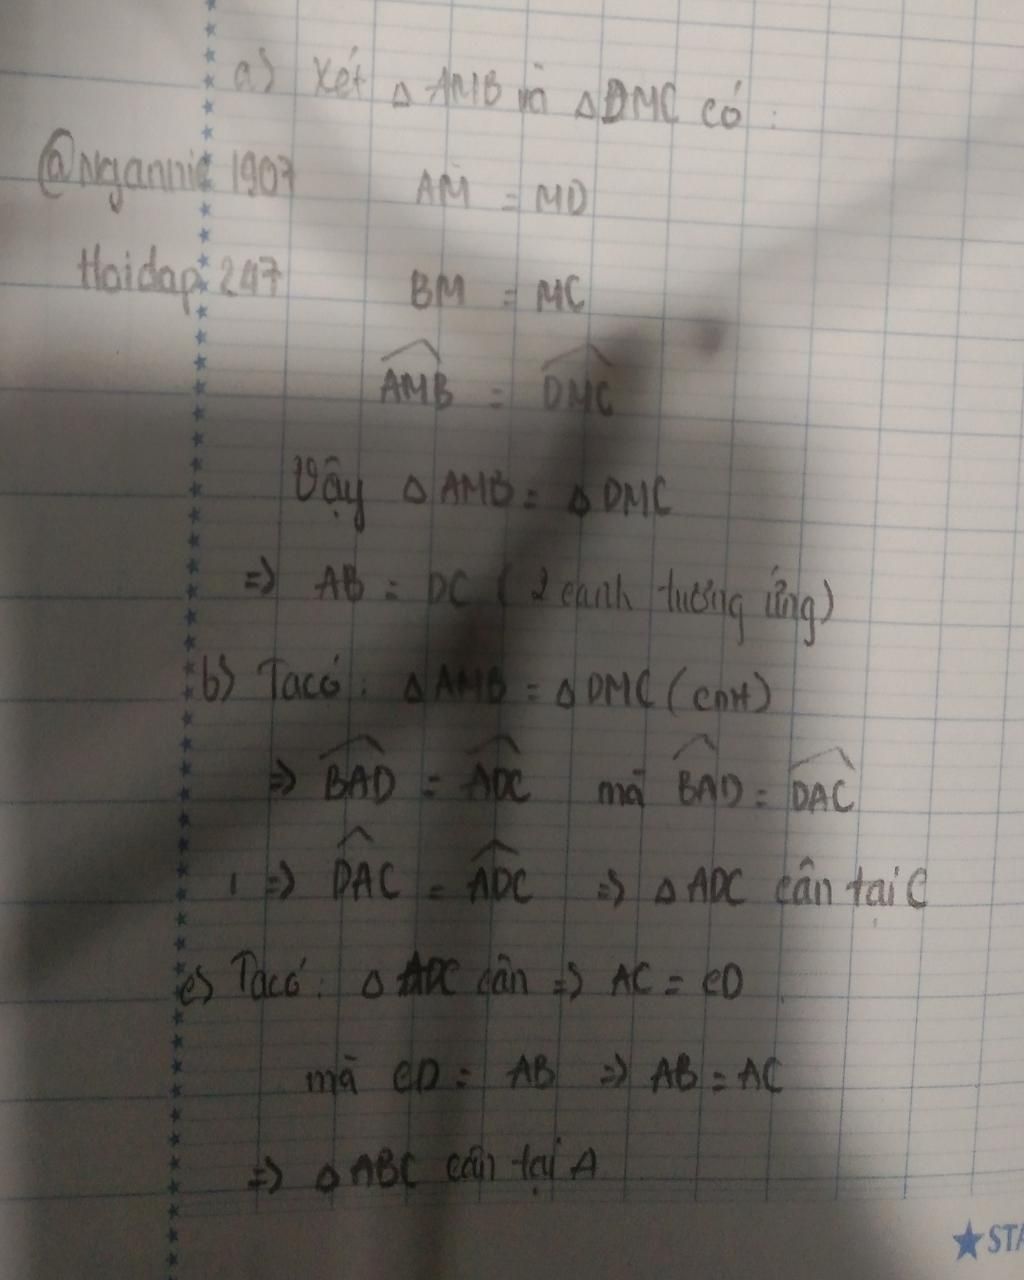 a) Xét △ AMB và △ DMC có :
@Ngannie 1907
AM = MD
Hoidap 247
BM = MC
AMB = DMC
Vậy △ AMB = △ DMC
=> AB = DC ( 2 cạnh tương ứng)
b) Ta có : △ AMB = △ DMC ( cmt)
=> BAD = ADC mà BAD = DAC
=> DAC = ADC => △ ADC cân tại C
c) Ta có : △ ADC cân => AC = CD
mà CD = AB => AB = AC
=> △ ABC cân tại A
★ STA